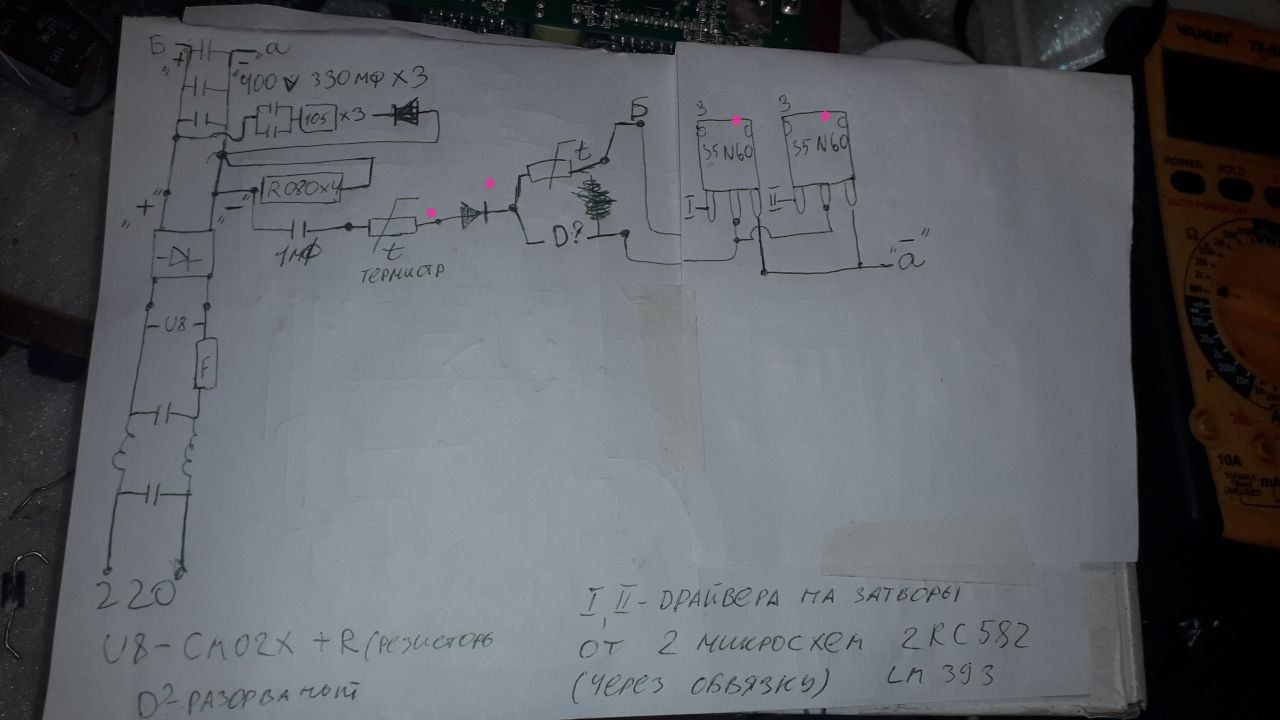 Б "+" "-" а
400 V 330 МФ X3
105 X3
R080X4
"+" "-"
1МФ
t
ТЕРМИСТР
t
D?
Б
3 3
35N60 35N60
I II
"-а"
U8
F
220
I, II - DРАЙВЕРА НА ЗАТВОРЫ
ОТ 2 МИКРОСХЕМ 2RC582
(ЧЕРЕЗ ОБВЯЗКУ) LM 393
U8 - CM02X + R (РЕЗИСТОРЫ
D? - РАЗОРВАНЫЙ
POWER HOLD
10A